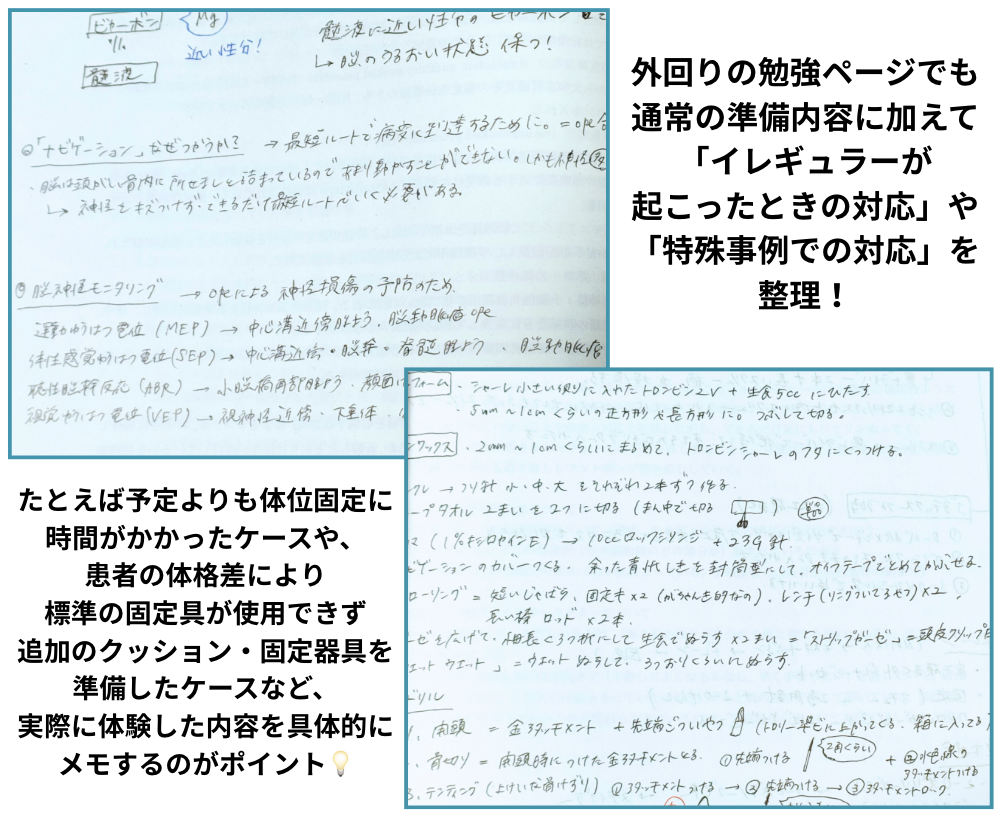 ビカーボン
Mg
近い性分！
髄液
髄液に近い性分の ビカーボン
↳ 脳のうるおい状態 保つ！
「ナビゲーション」なぜつかうか？ → 最短ルートで病変に到達するために。= ope
・脳は頭がい骨内に所せましと詰まっているので あまり動かすことができない。しかも神経
↳ 神経をキズつけず・できるだけ最短ルートでいく必要がある。
脳神経モニタリング → opeによる 神経損傷の予防のため.
運動ゆうはつ電位 (MEP) → 中心溝近傍 脳動脈瘤 ope
体性感覚ゆうはつ電位(SEP) → 中心溝近傍・脳幹・脊髄 脳動脈瘤
聴性脳幹反応 (ABR) → 小脳橋角部 顔面
視覚ゆうはつ電位 (VEP) → 視神経近傍・下垂体・
外回りの勉強ページでも
通常の準備内容に加えて
「イレギュラーが
起こったときの対応」や
「特殊事例での対応」を
整理！
たとえば予定よりも体位固定に
時間がかかったケースや、
患者の体格差により
標準の固定具が使用できず
追加のクッション・固定器具を
準備したケースなど、
実際に体験した内容を具体的に
メモするのがポイント💡
フォーム ・シャーレ小さい切りに入れたトロンビン2V + 生食5ccにひたす
・5mm～1cmくらいの正方形や長方形に。つぶして切る
ワックス ・2mm～1cmくらいにまるめて、トロンビンシャーレのフタにくっつける。
→ つり針 小・中・大 をそれぞれ2本ずつ作る。
プタオル 2まいを2つに切る (まん中で切る )
(1%キシロカインE) → 10ccロックシリンジ + 23G針
ゲーションのカバーつくる. 余った青おしきを封筒型にして、オペテープでとめてかぶせる。
ローリング = 短いじゃばら、固定を×2 (がちゃん的なの)、レンチ(リングついてるやつ)×2、
長い棒 ロッド ×2本.
ゼを広げて、細長く3つ折にして生食でぬらす ×2まい =「ストリップガーゼ」= 頭皮クリップ
ェット ウェット」= ウェットぬらして、3つおりくらいにぬらす.
ドリル
開頭 = 金アタッチメント + 先端ごついやつ (トロリー準ビに上がってくる. 箱に入ってる)
骨切り = 開頭時につけた金アタッチメントとる. ①先端つける 2角くらい + 水色線のアタッチメントつける
3. テンティング (上げいた骨けずり) ①アタッチメントつける → ②先端つける → ③アタッチメントロック